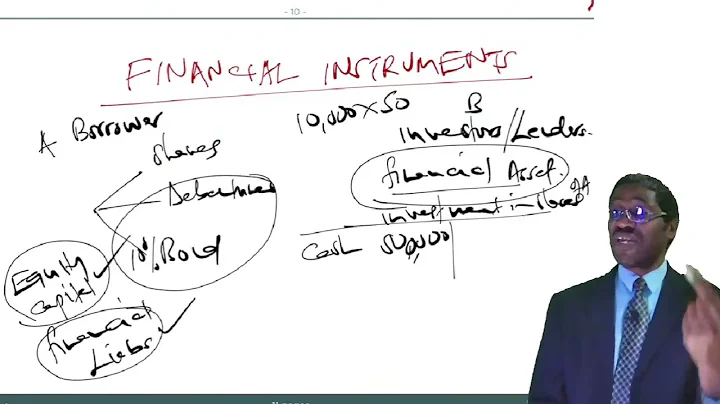 - 10 -
FINANCIAL INSTRUMENTS
A Borrower
Shares
Debentures
10% Bond
Equity
capital
financial
Liabs
10,000 x 50
B
Investors/Lenders
financial Asset.
investment in shares of A
Cash 500,000